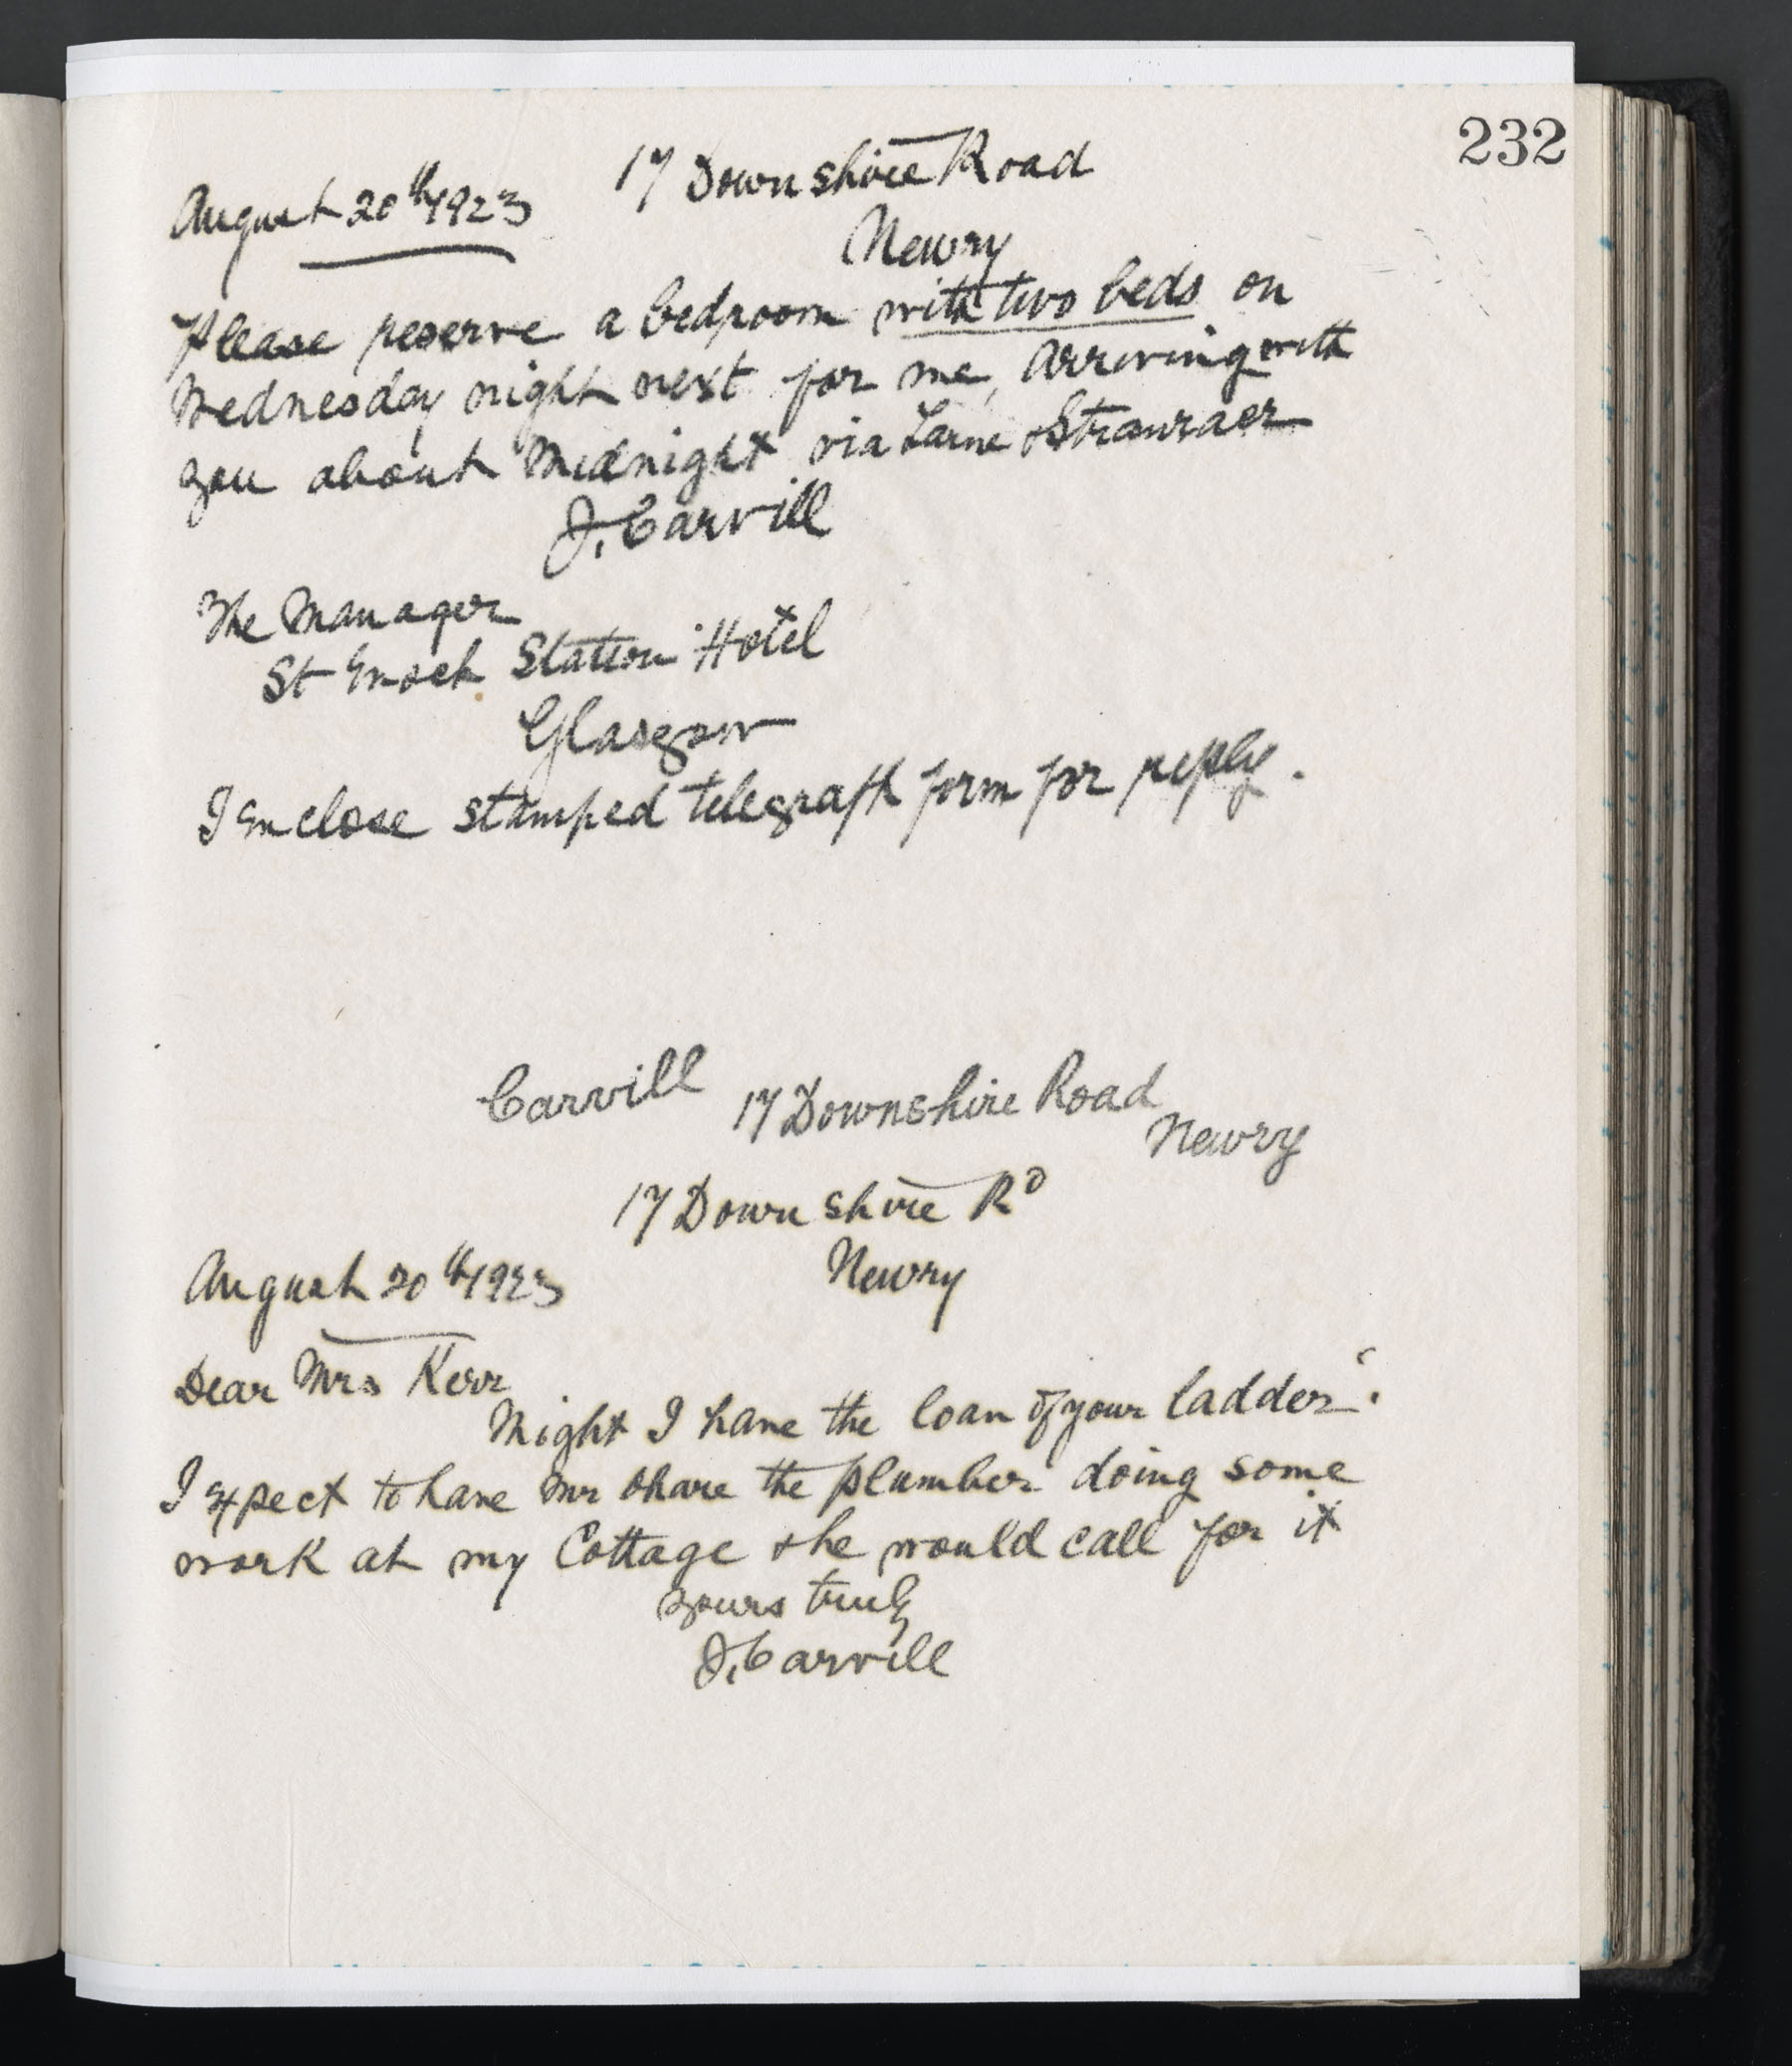 232
17 Downshire Road
August 20th 1923
Newry
Please reserve a bedroom with two beds on
Wednesday night next for me, arriving with
you about midnight via Larne & Stranraer
J. Carvill
The Manager
St Enoch Station Hotel
Glasgow
I Enclose stamped telegraph form for reply.
Carvill 17 Downshire Road
Newry
17 Downshire Rd
Newry
August 20th 1923
Dear Mrs Kerr
Might I have the loan of your ladder.
I expect to have Mr OHare the plumber doing some
work at my Cottage & he would call for it
Yours truly
J. Carvill